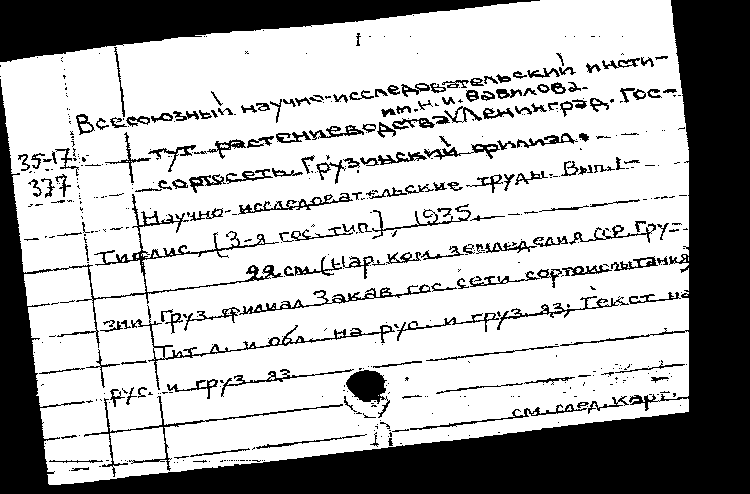 Всесоюзный научно-исследовательский инсти-
им. Н. И. Вавилова.
35-17. тут растениеводства\(Ленинград. Гос-
377 сортосеть. Грузинский филиал.
Научно-исследовательские труды. Вып. 1-
Тифлис, [3-я гос. тип.], 1935.
22 см. (Нар. ком. земледелия ССР Гру-
зии Груз. филиал Закав. гос. сети сортоиспытания)
Тит. л. и обл. на рус. и груз. яз; Текст на
рус. и груз. яз.
см. след. карт.